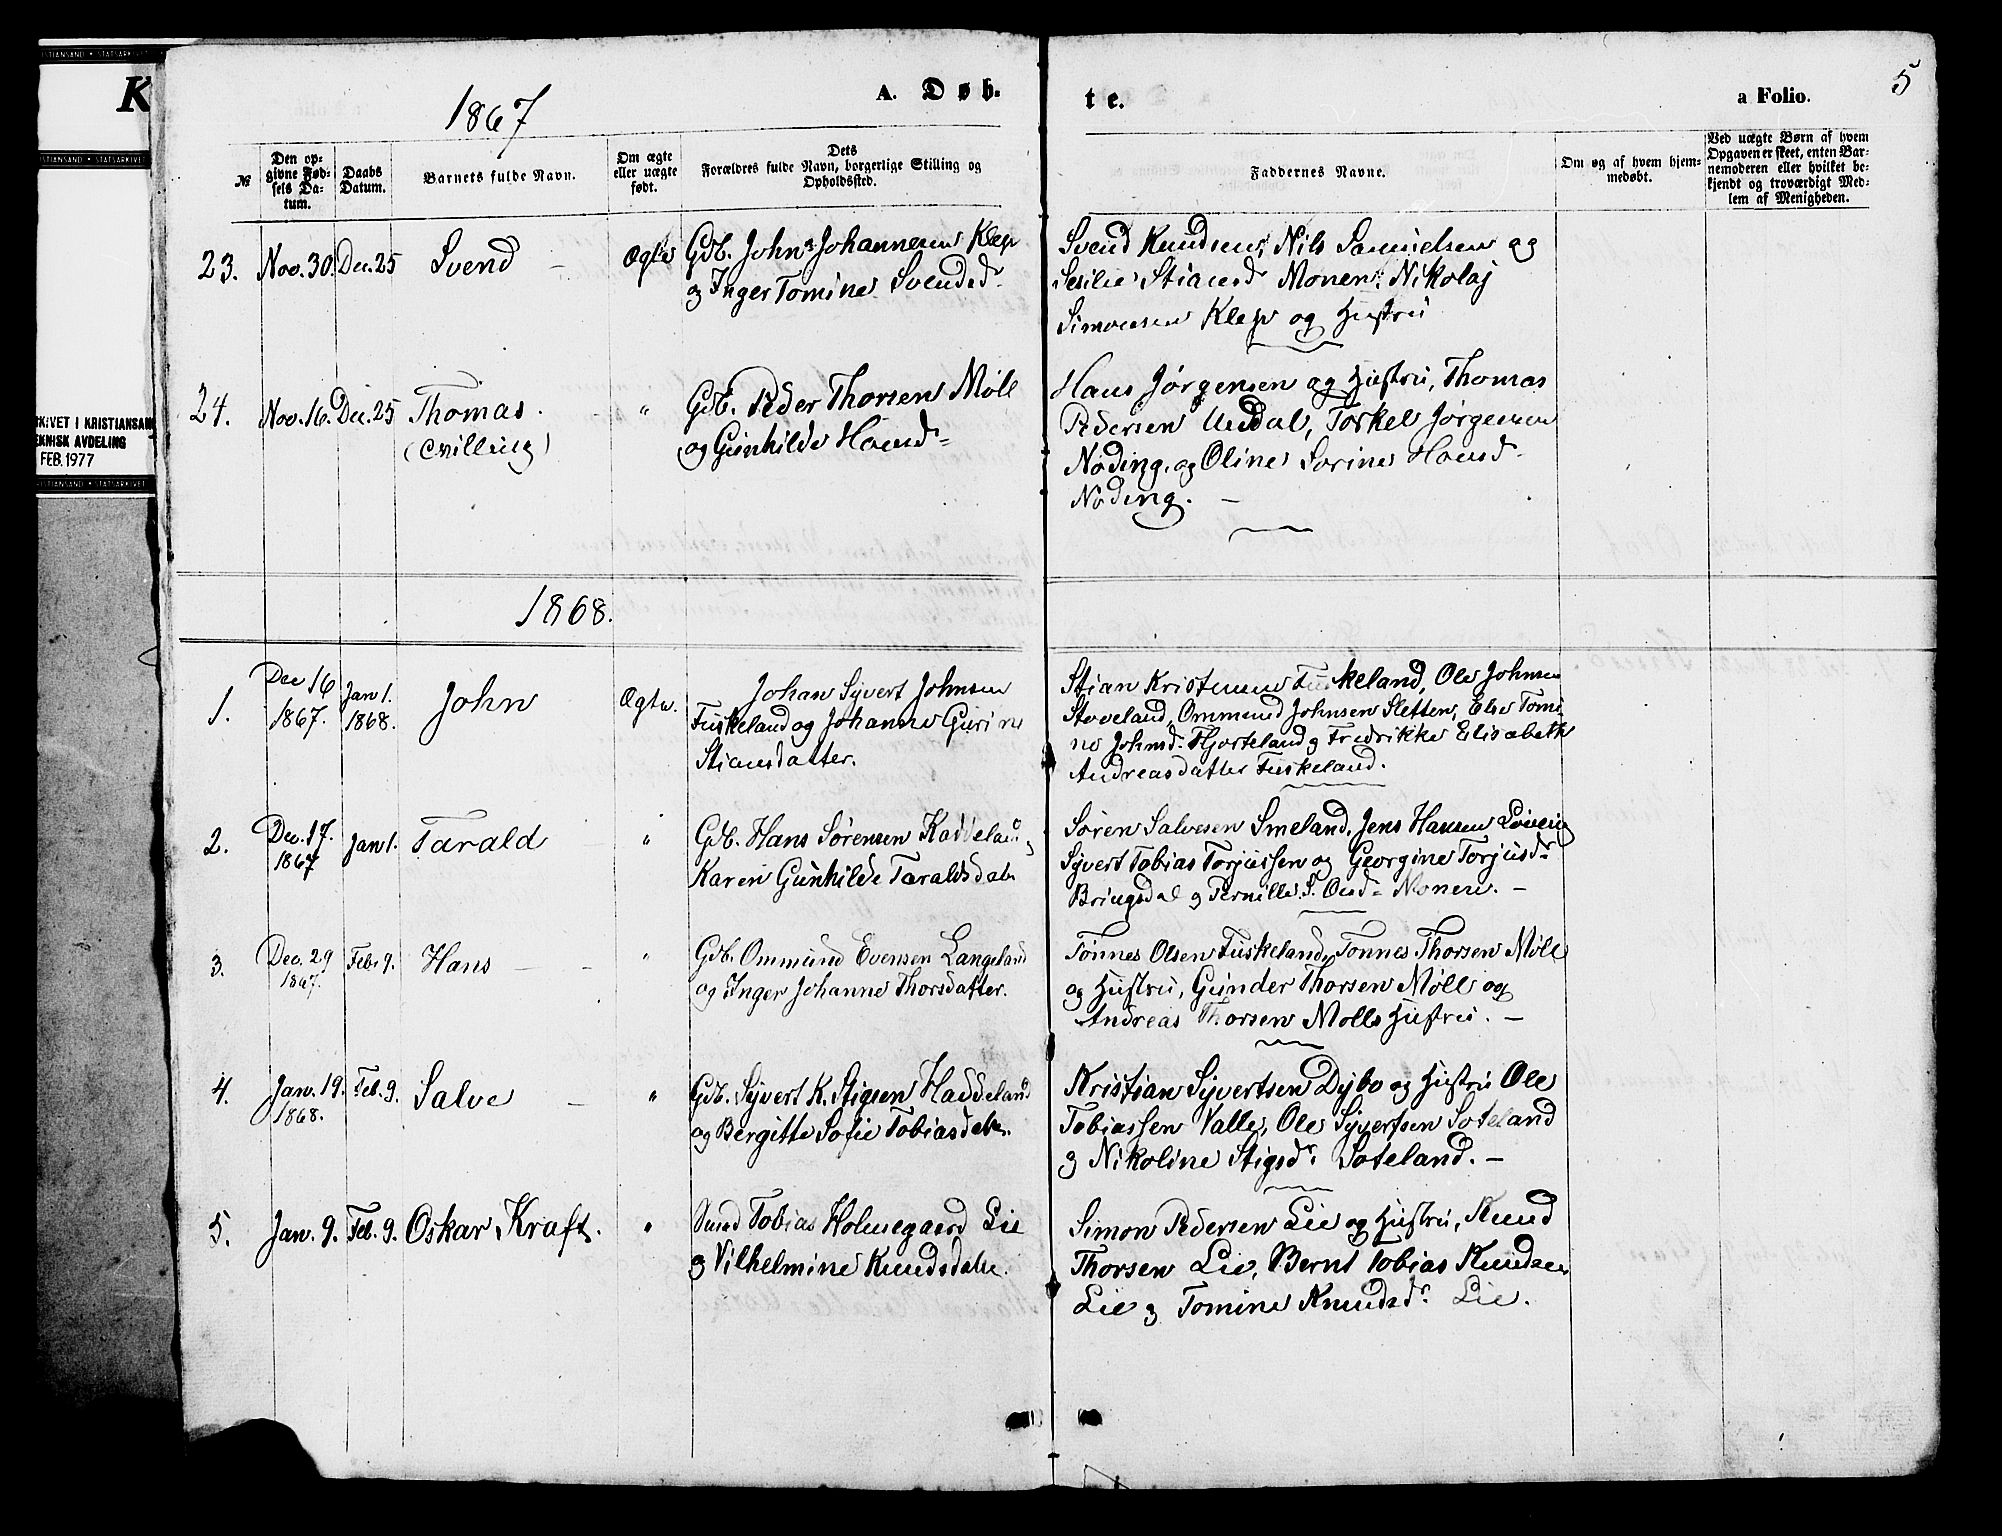 KRISTIANSAND • STATSARKIVET
K
KRISTIANSAND • STATSARKIVET
ARKIVET I KRISTIANSAND
TEKNISK AVDELING
FEB. 1977
KRISTIANSAND • STATSARKIVET
1867
A. Døb-
te.
a Folio.
5
№
Den op-
givne Fød-
sels Da-
tum.
Daabs
Datum.
Barnets fulde Navn.
Om ægte
eller uægte
født.
Dets
Forældres fulde Navn, borgerlige Stilling og
Opholdssted.
Faddernes Navne.
Om og af hvem hjem-
medøbt.
Ved uægte Børn af hvem
Opgaven er skeet, enten Bar-
nemoderen eller hvilket be-
kjendt og troværdigt Med-
lem af Menigheden.
23. Nov. 30. Dec. 25 Svend – Ægte
Gdb. John Johannesen Klep
og Inger Tomine Svendsd.
Svend Knudsen, Nils Samuelsen og
Sesilie Stiansd Monen. Nikolaj
Simonsen Klep og Hustru
24. Nov. 16. Dec. 25 Thomas.
(Tvilling)
"
Gdb. Peder Thorsen Møll
og Gunhilde Hansd=
Hans Jørgensen og Hustru, Thomas
Pedersen Uddal, Torkel Jørgensen
Noding, og Oline Sorine Hansd.
Noding. –
1868.
1. Dec 16
1867.
Jan 1.
1868.
John
Ægte.
Johan Syvert Johnsen
Fuskeland og Johanne Gurine
Stiansdatter.
Stian Kristensen Fuskeland, Ole Johnsen
Stoveland, Ommund Johnsen Sletten, Else Tomi
ne Johnsd. Hjorteland og Fredrikke Elisabeth
Andreasdatter Fuskeland.
2. Dec. 17.
1867
Jan 1. Tarald "
Gdb. Hans Sørensen Haddeland
Karen Gunhilde Taraldsdatr
Søren Salvesen Smeland, Jens Hansen
Syvert Tobias Torjussen og Georgine Torjusdr
Bringsdal og Pernille S. Ond= Monen. –
3. Dec. 29
1867.
Febr 9. Hans – – "
Gdb. Ommund Evensen Langeland
og Inger Johanne Thorsdatter.
Tønnes Olsen Fuskeland, Tønnes Thorsen Møll
og Hustru, Gunder Thorsen Møll og
Andreas Thorsen Mølls Hustru. –
4. Jan. 19.
1868.
Feb. 9. Salve – "
Gdb. Syvert K. Stigsen Haddeland
og Bergitte Sofie Tobiasdatr.
Kristian Syvertsen Dybo og Hustru Ole
Tobiassen Valle, Ole Syvertsen Søteland
og Nikoline Stigsdr. Søteland. –
5. Jan. 9. Feb. 9. Oskar Kraft. "
Tobias Holmegaard Lie
og Vilhelmine Knudsdatr.
Simon Pedersen Lie og Hustru, Knud
Thorsen Lie, Bernt Tobias Knudsen
Lie og Tomine Knudsdr. Lie.